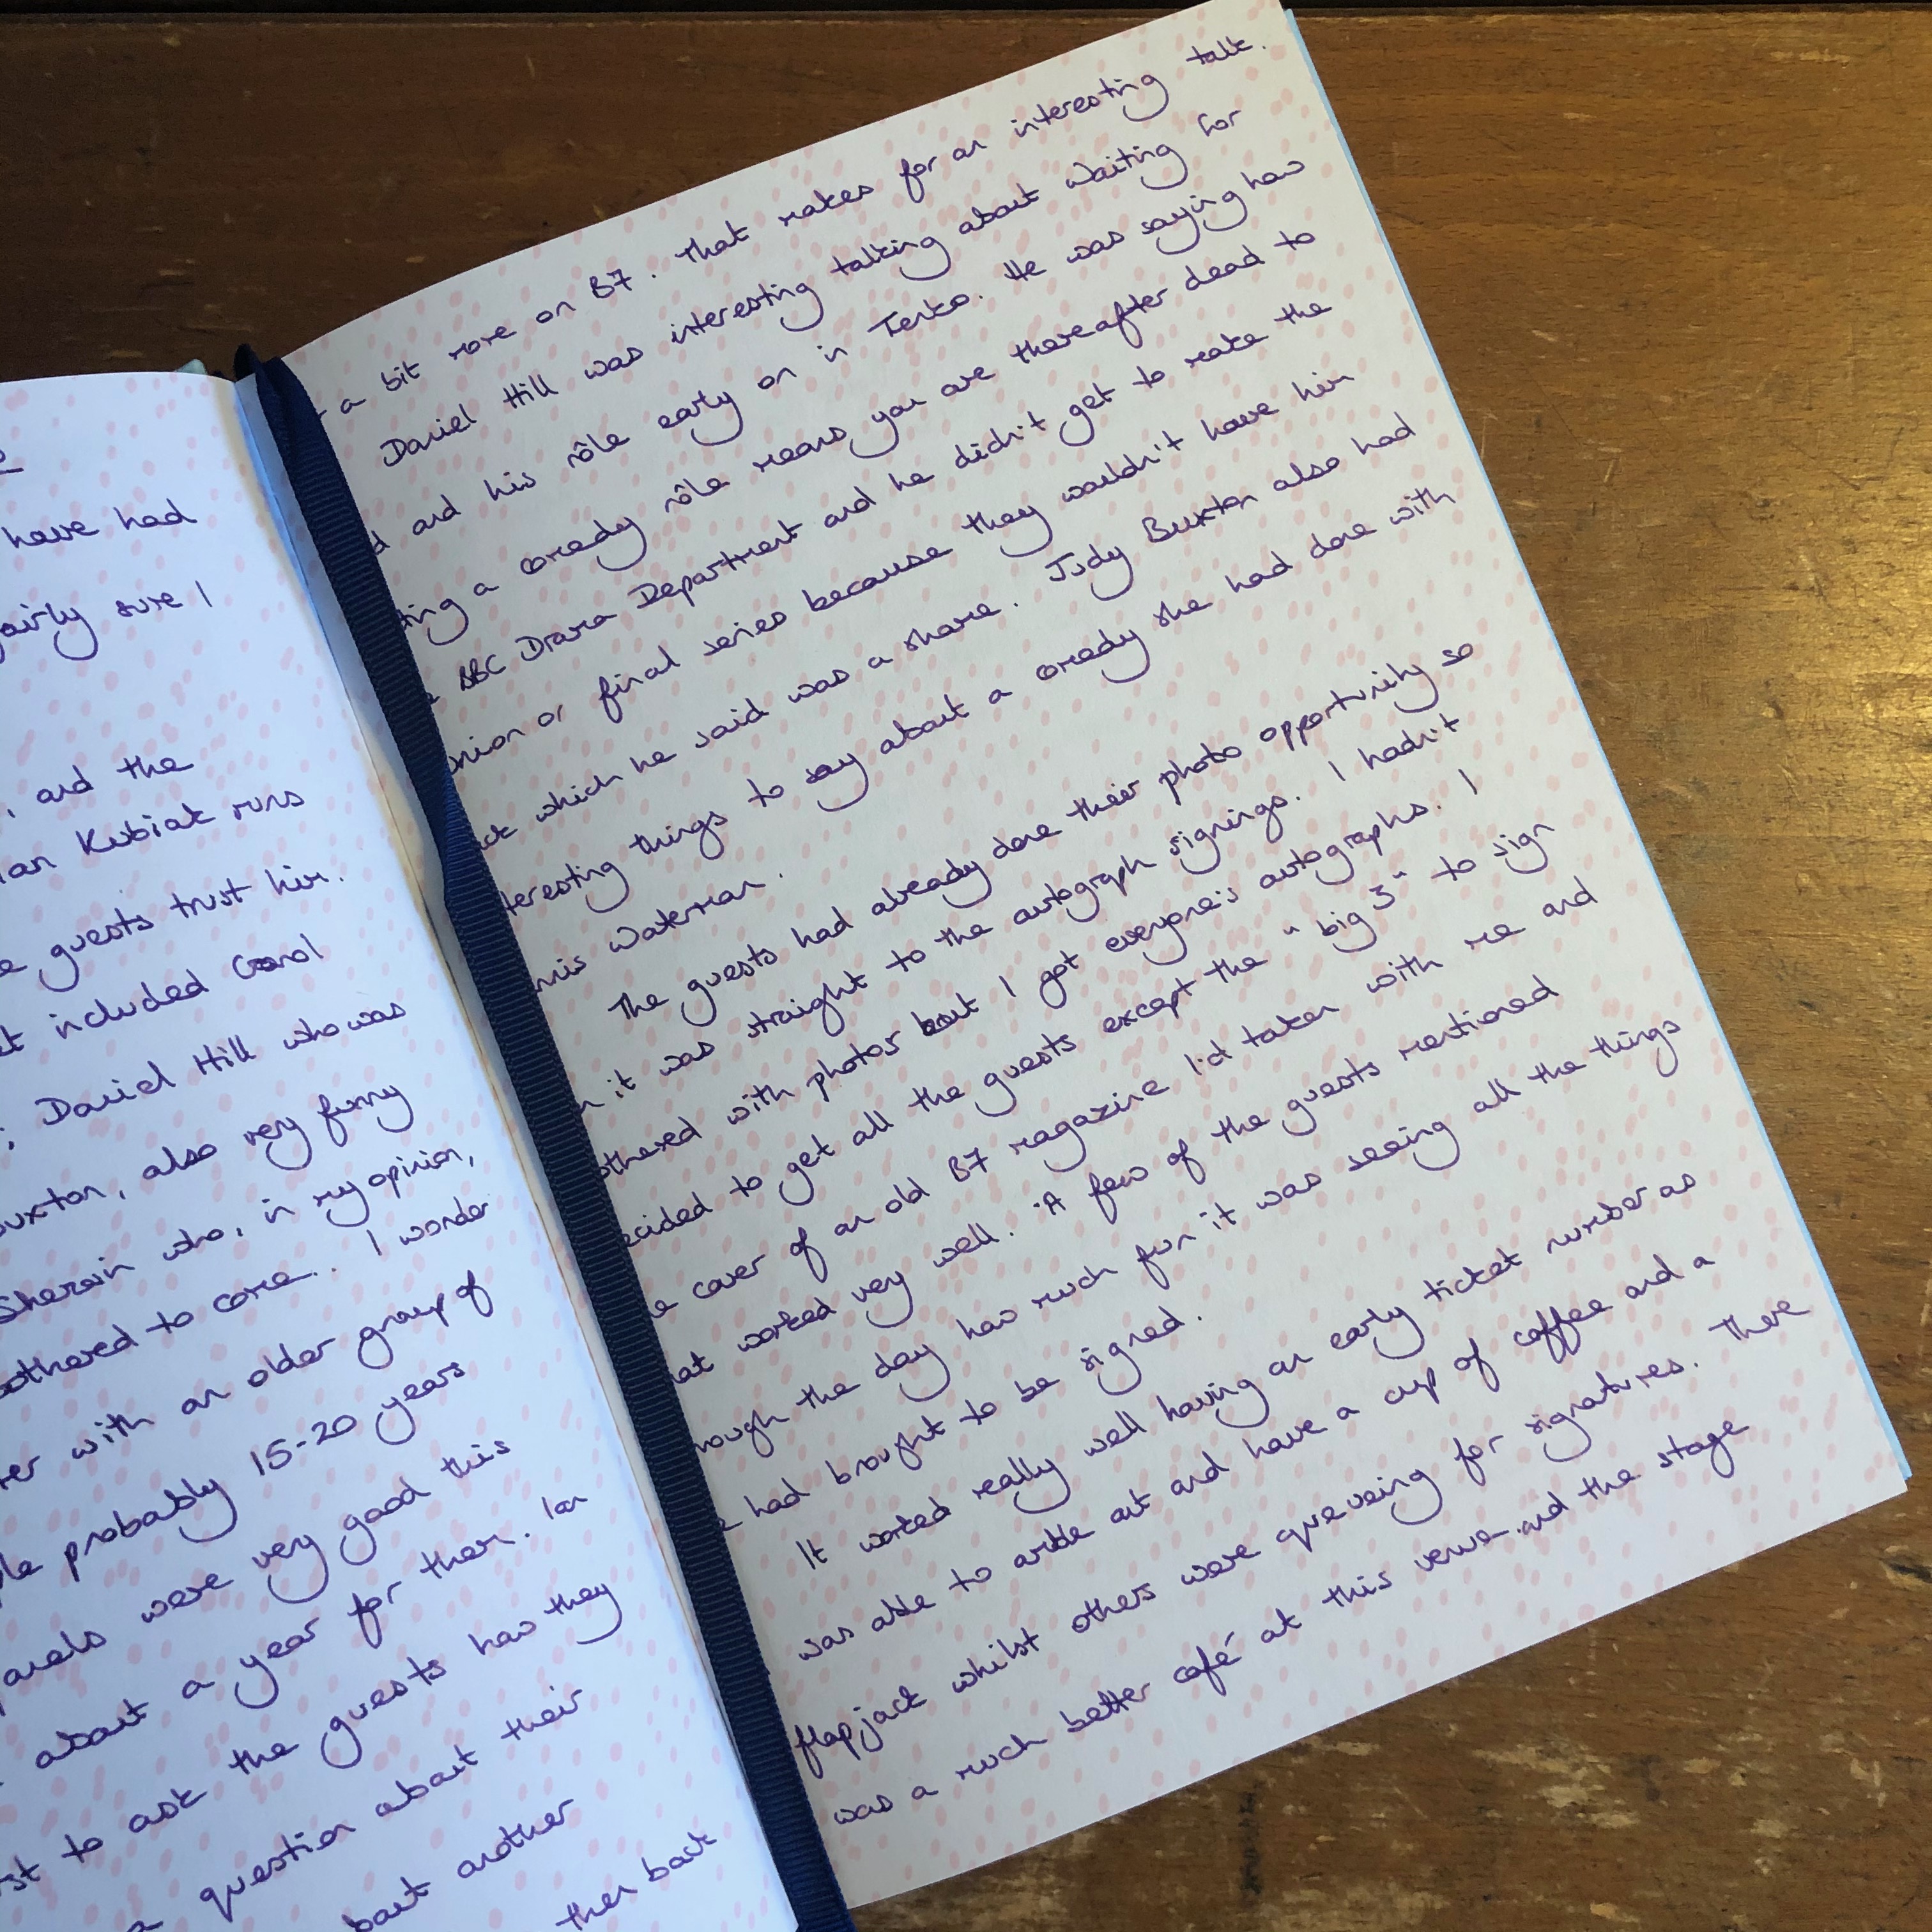 have had
airly sure I
, and the
an Kubiak runs
e guests trust him.
t included Carol
; David Hill who was
Buxton, also very funny
Sherwin who, in my opinion,
bothered to come. I wonder
with an older group of
probably 15-20 years
were very good this
about a year for them. Ian
to ask the guests how they
question about their
another
then back
a bit more on B7. That makes for an interesting talk.
Daniel Hill was interesting talking about Waiting for
and his rôle early on in Tenko. He was saying how
a comedy rôle means you are thereafter dead to
BBC Drama Department and he didn't get to make the
or final series because they wouldn't have him
which he said was a shame. Judy Buxton also had
things to say about a comedy she had done with
Waterman.
The guests had already done their photo opportunity so
it was straight to the autograph signings. I hadn't
with photos but I got everyone's autographs. I
to get all the guests except the "big 3" to sign
cover of an old B7 magazine I'd taken with me and
worked very well. A few of the guests mentioned
the day how much fun it was seeing all the things
had brought to be signed.
It worked really well having an early ticket number as
was able to amble out and have a cup of coffee and a
flapjack whilst others were queueing for signatures. There
was a much better café at this venue and the stage